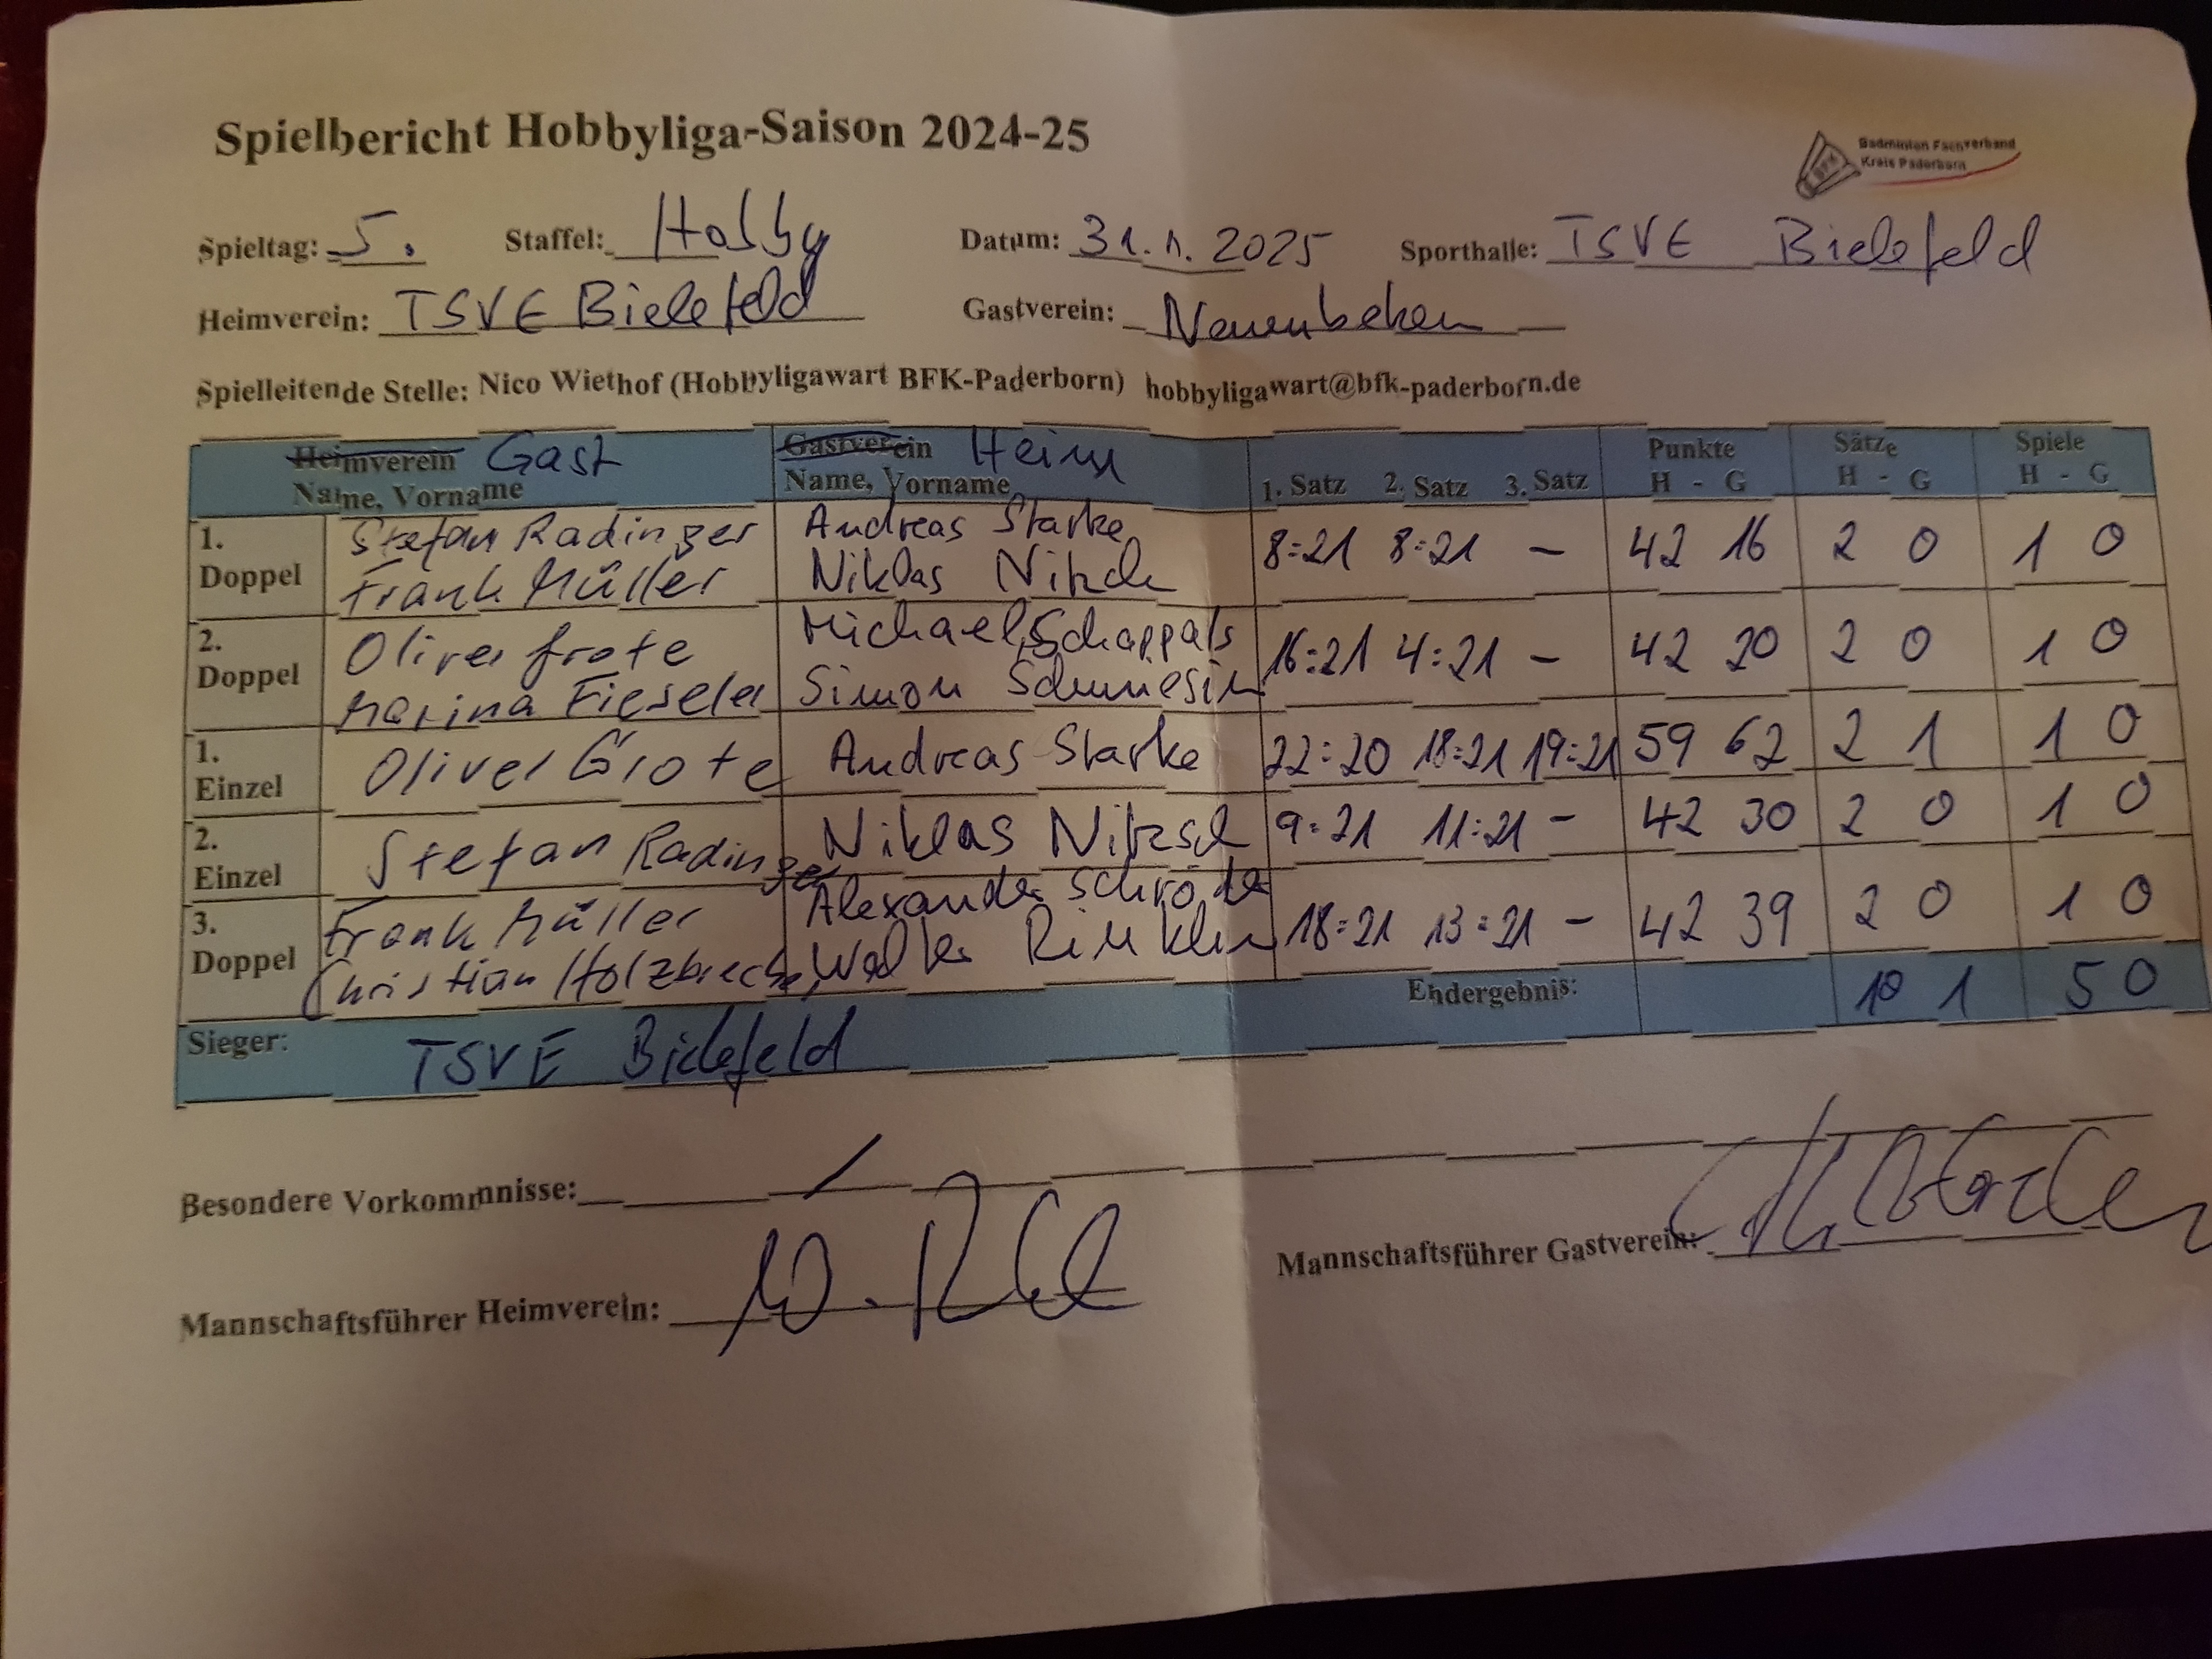 Spielbericht Hobbyliga-Saison 2024-25
Badminton Fachverband
Kreis Paderborn
BFK
Spieltag: 5. Staffel: Hobby Datum: 31.1.2025 Sporthalle: TSVE Bielefeld
Heimverein: TSVE Bielefeld Gastverein: Neuenbeken
Spielleitende Stelle: Nico Wiethof (Hobbyligawart BFK-Paderborn) hobbyligawart@bfk-paderborn.de
Heimverein Gast Gastverein Heim Punkte Sätze Spiele
Name, Vorname Name, Vorname 1. Satz 2. Satz 3. Satz H - G H - G H - G
1. Stefan Radinger Andreas Starke 8:21 8:21 - 42 16 2 0 1 0
Doppel Frank Müller Niklas
2. Oliver Grote Michael Schappals 16:21 4:21 - 42 20 2 0 1 0
Doppel Marina Fieseler Simon
1. Oliver Grote Andreas Starke 22:20 18:21 19:21 59 62 2 1 1 0
Einzel
2. Stefan Radinger Niklas 9:21 11:21 - 42 30 2 0 1 0
Einzel
3. Frank Müller Alexander Schröder 18:21 13:21 - 42 39 2 0 1 0
Doppel Christian Walter
Endergebnis: 10 1 5 0
Sieger: TSVE Bielefeld
Besondere Vorkommnisse: /
Mannschaftsführer Gastverein:
Mannschaftsführer Heimverein: